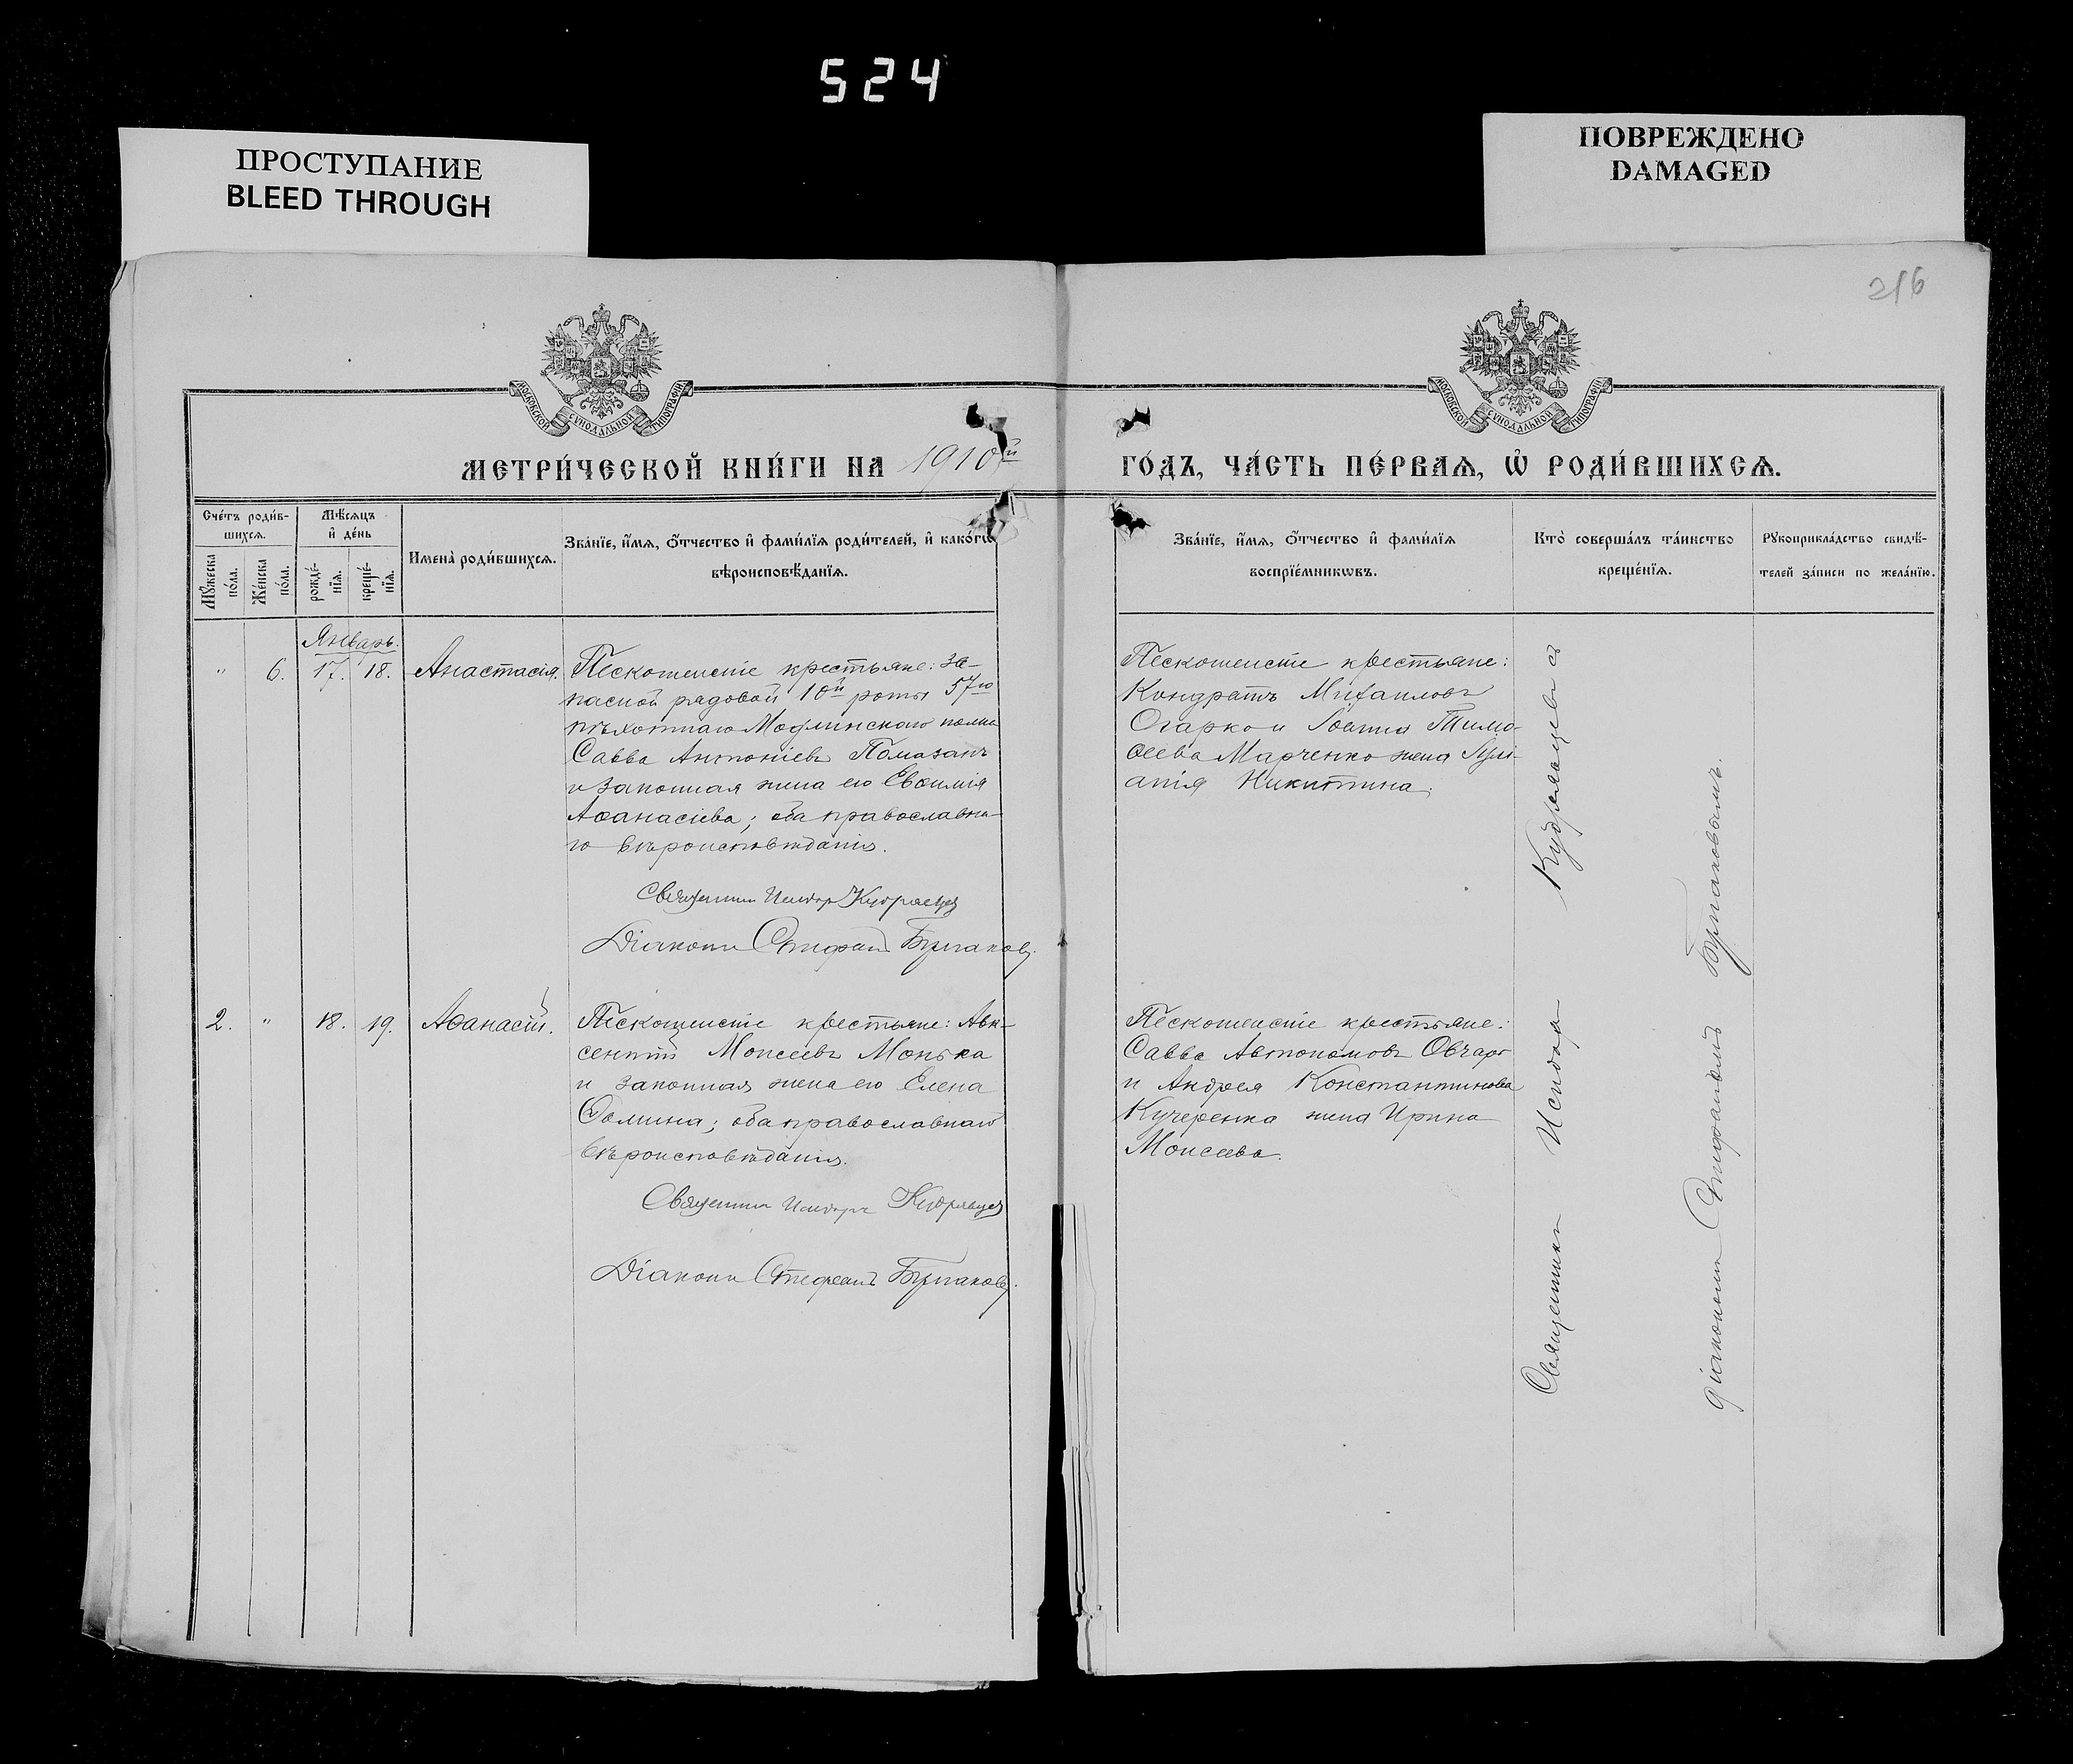 524
ПРОСТУПАНИЕ
BLEED THROUGH
ПОВРЕЖДЕНО
DAMAGED
216
МОСКОВСКОЙ СУНОДАЛЬНОЙ ТИПОГРАФІИ
МОСКОВСКОЙ СУНОДАЛЬНОЙ ТИПОГРАФІИ
МЕТРИ́ЧЕСКОЙ КНИ́ГИ НА 1910й
ГО́ДЪ, ЧА́СТЬ ПЕ́РВАѦ, Ѿ РОДИ́ВШИХСѦ.
Сче́тъ роди́в-
шихсѧ.
Мꙋ́жеска по́ла.
Же́нска по́ла.
Мѣ́сѧцъ
и҆ де́нь
рожде́-
нїѧ.
креще́-
нїѧ.
Имена̀ роди́вшихсѧ.
Зва́нїе, и҆́мѧ, ѻ҆́тчество и҆ фами́лїѧ роди́телей, и҆ како́гѡ
вѣроисповѣ́данїѧ.
Зва́нїе, и҆́мѧ, ѻ҆́тчество и҆ фами́лїѧ
воспрїе́мникѡвъ.
Кто̀ соверша́лъ та́инство
креще́нїѧ.
Рꙋкоприкла́дство свидѣ́-
телей за́писи по жела́нїю.
Январь.
" 6. 17. 18. Анастасія.
Пескошенскіе крестьяне: за-
пасной рядовой 10й роты 57го
пѣхотнаго Модлинскаго полка
Савва Антоніевъ Помазанъ
и законная жена его Евѳимія
Аѳанасіева; оба православна-
го вѣроисповѣданія.
Священникъ Исидоръ Кудрявцев
Діаконъ Стефанъ Булгаковъ.
Пескошенскіе крестьяне:
Кондратъ Михаиловъ
Огарко и Іоанна Тимо-
ѳеева Марченко жена Іулі-
анія Никитина.
2. " 18. 19. Аѳанасій.
Пескошенскіе крестьяне: Авк-
сентій Моисеевъ Монька
и законная жена его Елена
Ѳомина; оба православнаго
вѣроисповѣданія.
Священникъ Исидоръ Кудрявцев
Діаконъ Стефанъ Булгаковъ.
Пескошенскіе крестьяне:
Савва Автономовъ Овчаръ
и Андрея Константинова
Кучеренка жена Ирина
Моисеева.
Священникъ Исидоръ Кудрявцевъ съ
діакономъ Стефаномъ Булгаковымъ.